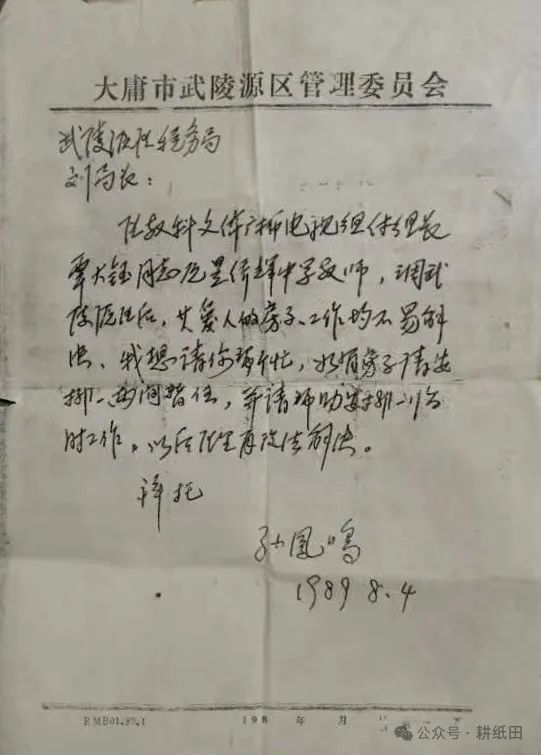 大庸市武陵源区管理委员会
武陵源区税务局
刘局长:
区教科文体广播电视组付组长
覃大钰同志原是侨辉中学教师,调武
陵源区后,其爱人的房子、工作均不易解
决、我想请你帮个忙,如有房子请安
排一两间暂住,并请帮助安排一临
时工作。以后区里再设法解决。
拜托
孙凤鸣
1989 8.4
RMB01.89.1 198 年 月
公众号·耕纸田